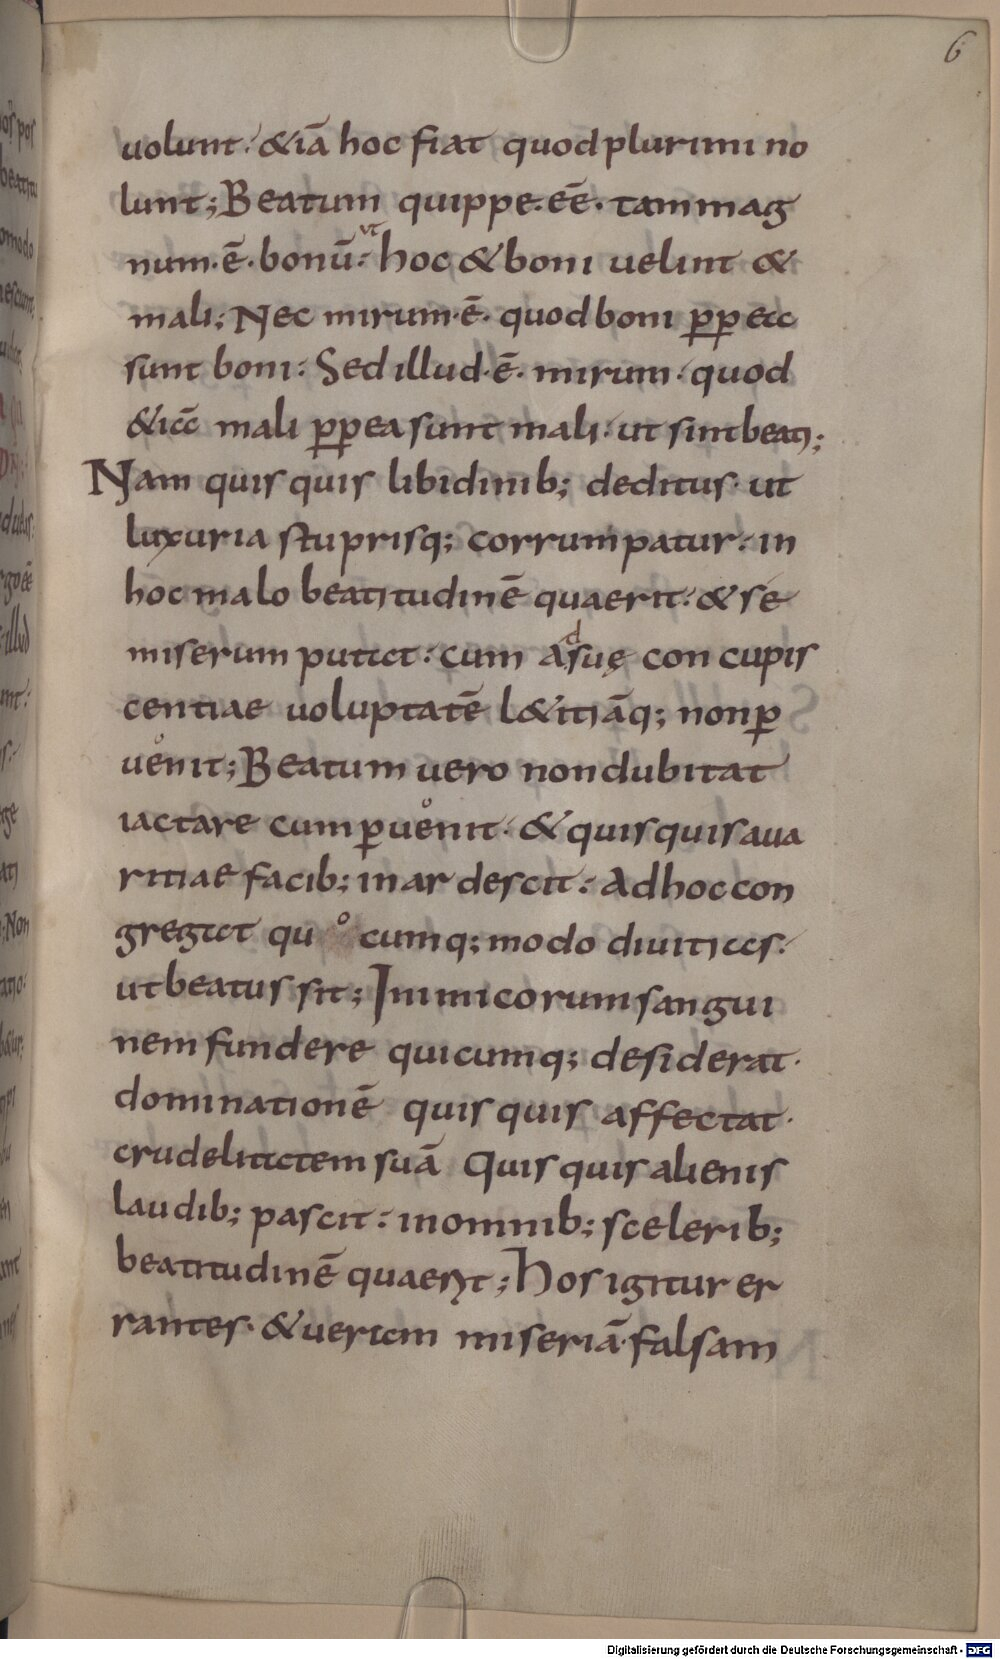 6
uolunt: &iā hoc fiat quod plurimi no
lunt; Beatum quippe. eē. tam mag
num. ē. bonū: ut hoc & boni uelint &
mali; Nec mirum. ē. quod boni ꝓꝑea
sunt boni: Sed illud. ē. mirum. quod
&iā mali ꝓꝑea sunt mali. ut sint beati;
Nam quisquis libidinib; deditus. ut
luxuria stuprisq; corrumpatur: in
hoc malo beatitudinē quaerit: & se
miserum putat: cum ad suę concupis
centiae uoluptatē l&itiāq; non ꝑ
uenit; Beatum uero non dubitat
iactare cum ꝑuenit. & quisquis aua
ritiae facib; inardescit: Ad hoc con
gregat quocumq; modo diuitias:
ut beatus sit; Inimicorum sangui
nem fundere quicumq; desiderat.
dominationē quisquis affectat.
crudelitatem suā Quisquis alienis
laudib; pascit: in omnib; scelerib;
beatitudinē quaerit; Hos igitur er
rantes. & ueram miseriā. falsam
Digitalisierung gefördert durch die Deutsche Forschungsgemeinschaft - DFG